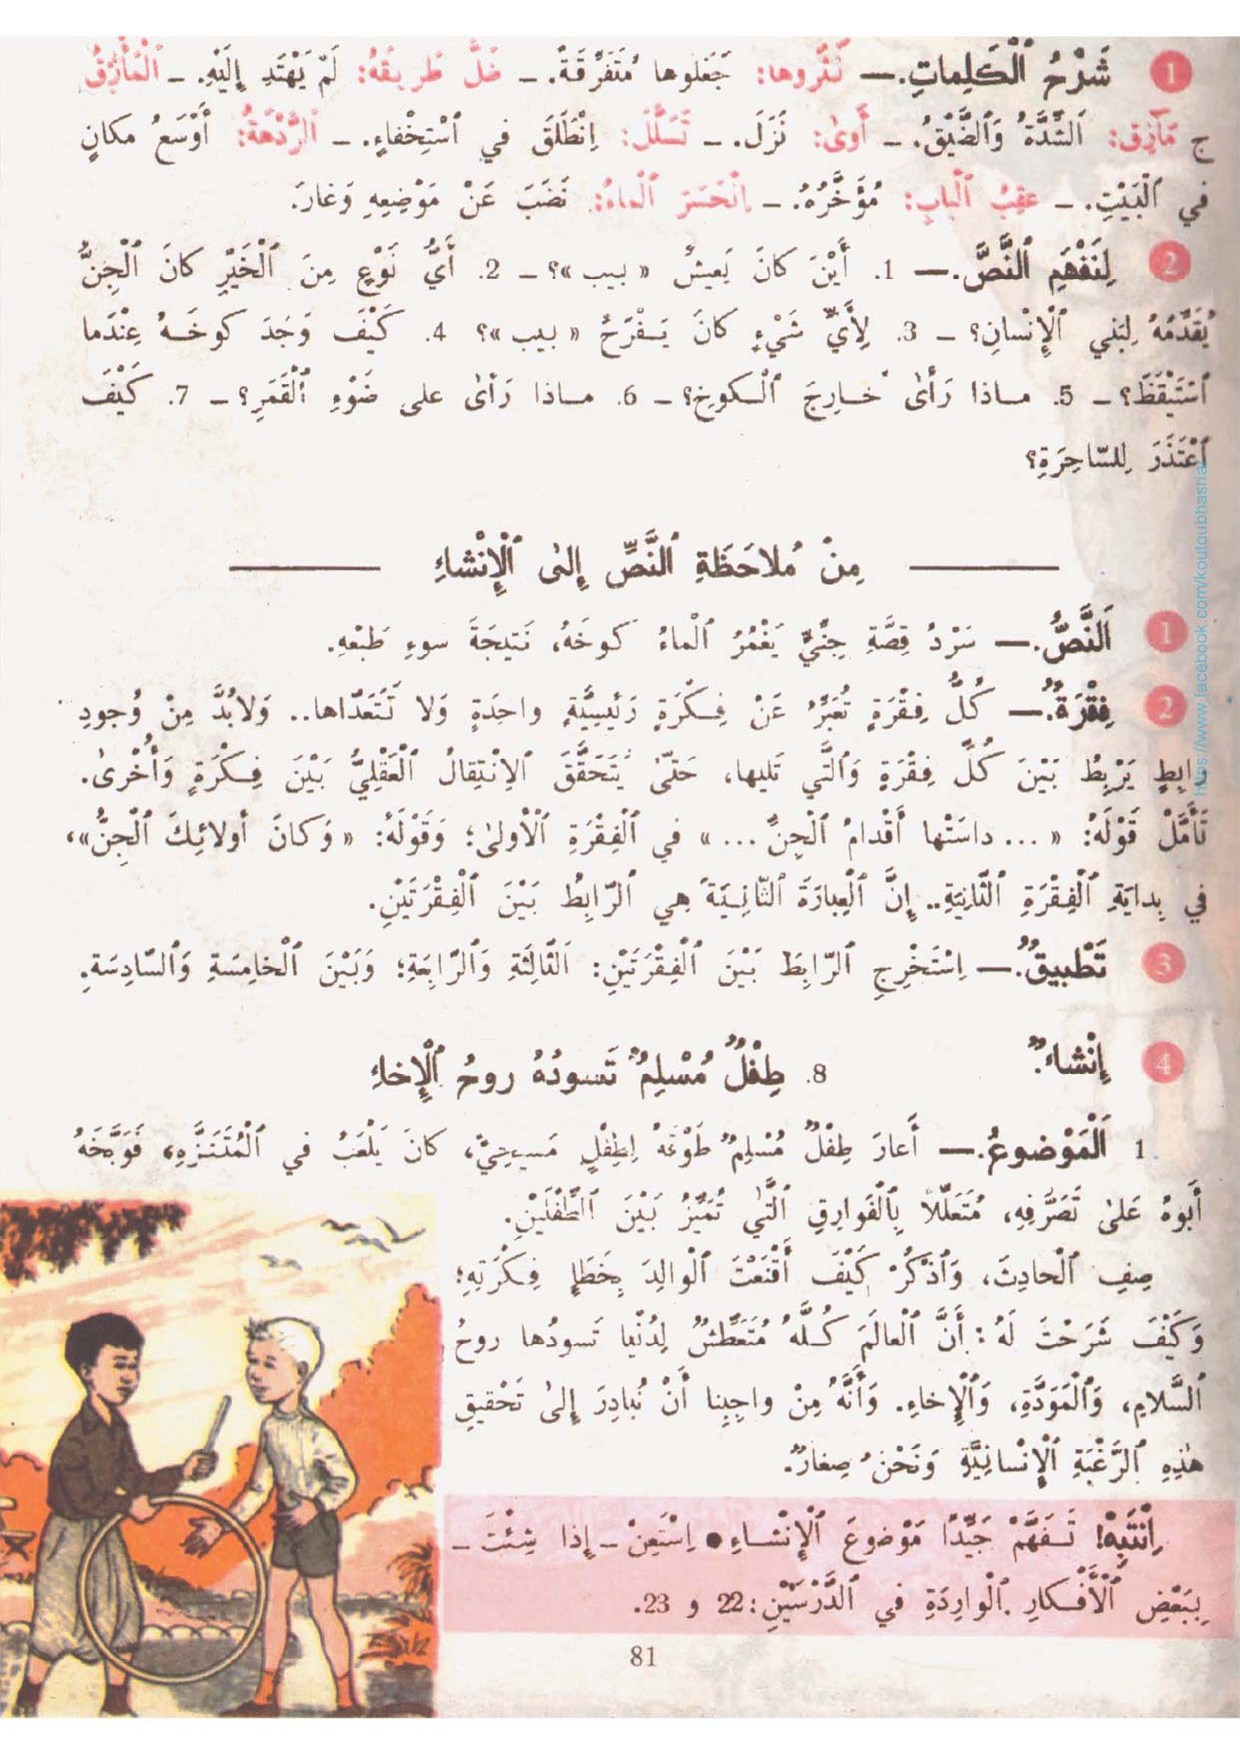 1 شَرْحُ ٱلْكَلِماتِ.— نَثَروها: جَعَلوها مُتَفَرِّقَةً. – ضَلَّ طَريقَهُ: لَمْ يَهْتَدِ إِلَيْهِ. – ٱلْمَأْزِقُ
ج مَآزِق: ٱلشِّدَّةُ وَٱلضَّيْقُ. – أَوىٰ: نَزَلَ. – تَسَلَّلَ: اِنْطَلَقَ في ٱسْتِخْفاءٍ. – ٱلرَّدْهَةُ: أَوْسَعُ مكانٍ
في ٱلْبَيْتِ. – عَقِبُ ٱلْبابِ: مُؤَخَّرُهُ. – اِنْحَسَرَ ٱلْماءُ: نَضَبَ عَنْ مَوْضِعِهِ وَغارَ.
2 لِنَفْهَمِ ٱلنَّصَّ.— 1. أَيْنَ كانَ يَعيشُ « بيب »؟ – 2. أَيُّ نَوْعٍ مِنَ ٱلْخَيْرِ كانَ ٱلْجِنُّ
يُقَدِّمُهُ لِبَني ٱلْإِنْسانِ؟ – 3. لِأَيِّ شَيْءٍ كانَ يَفْرَحُ « بيب »؟ 4. كَيْفَ وَجَدَ كوخَهُ عِنْدَما
ٱسْتَيْقَظَ؟ – 5. ماذا رَأىٰ خارِجَ ٱلْكوخِ؟ – 6. ماذا رَأىٰ على ضَوْءِ ٱلْقَمَرِ؟ – 7. كَيْفَ
ٱعْتَذَرَ لِلسّاحِرَةِ؟
مِنْ مُلاحَظَةِ ٱلنَّصِّ إِلىٰ ٱلْإِنْشاءِ
1 اَلنَّصُّ.— سَرْدُ قِصَّةِ جِنِّيٍّ يَغْمُرُ ٱلْماءُ كوخَهُ، نَتيجَةَ سوءِ طَبْعِهِ.
2 فِقْرَةٌ.— كُلُّ فِقْرَةٍ تُعَبِّرُ عَنْ فِكْرَةٍ رَئيسِيَّةٍ واحِدَةٍ وَلا تَتَعَدّاها.. وَلابُدَّ مِنْ وُجودِ
رابِطٍ يَرْبِطُ بَيْنَ كُلِّ فِقْرَةٍ وَٱلَّتي تَليها، حَتّىٰ يَتَحَقَّقَ ٱلاِنْتِقالُ ٱلْعَقْلِيُّ بَيْنَ فِكْرَةٍ وَأُخْرىٰ.
تَأَمَّلْ قَوْلَهُ: « ... داسَتْها أَقْدامُ ٱلْجِنِّ ... » في ٱلْفِقْرَةِ ٱلْأولىٰ؛ وَقَوْلَهُ: « وَكانَ أولائِكَ ٱلْجِنُّ»،
في بِدايَةِ ٱلْفِقْرَةِ ٱلثّانِيَةِ.. إِنَّ ٱلْعِبارَةَ ٱلثّانِيَةَ هِي ٱلرّابِطُ بَيْنَ ٱلْفِقْرَتَيْنِ.
3 تَطْبيقٌ.— اِسْتَخْرِجِ ٱلرّابِطَ بَيْنَ ٱلْفِقْرَتَيْنِ: اَلثّالِثَةِ وَٱلرّابِعَةِ؛ وَبَيْنَ ٱلْخامِسَةِ وَٱلسّادِسَةِ.
4 إِنْشاءٌ. 8. طِفْلٌ مُسْلِمٌ تَسودُهُ روحُ ٱلْإِخاءِ
1. اَلْمَوْضوعُ.— أَعارَ طِفْلٌ مُسْلِمٌ طَوْقَهُ لِطِفْلٍ مَسيحِيٍّ، كانَ يَلْعَبُ في ٱلْمُتَنَزَّهِ، فَوَبَّخَهُ
أَبوهُ عَلىٰ تَصَرُّفِهِ، مُتَعَلِّلاً بِٱلْفَوارِقِ ٱلَّتي تُمَيِّزُ بَيْنَ ٱلطِّفْلَيْنِ.
صِفِ ٱلْحادِثَ، وَٱذْكُرْ كَيْفَ أَقْنَعْتَ ٱلْوالِدَ بِخَطَإِ فِكْرَتِهِ؛
وَكَيْفَ شَرَحْتَ لَهُ: أَنَّ ٱلْعالَمَ كُلَّهُ مُتَعَطِّشٌ لِدُنْيا تَسودُها روحُ
ٱلسَّلامِ، وَٱلْمَوَدَّةِ، وَٱلْإِخاءِ. وَأَنَّهُ مِنْ واجِبِنا أَنْ نُبادِرَ إِلىٰ تَحْقيقِ
هٰذِهِ ٱلرَّغْبَةِ ٱلْإِنْسانِيَّةِ وَنَحْنُ صِغارٌ.
اِنْتَبِهْ! تَفَهَّمْ جَيِّدًا مَوْضوعَ ٱلْإِنْشاءِ ● اِسْتَعِنْ – إِذا شِئْتَ –
بِبَعْضِ ٱلْأَفْكارِ ٱلْوارِدَةِ في ٱلدَّرْسَيْنِ: 22 و 23.
81
https://www.facebook.com/koutoubhasria